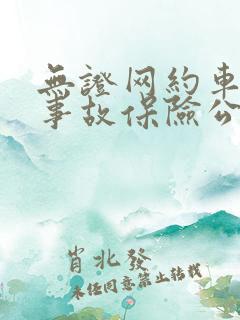 無證网約車
事故保險公
肖北發
未任同意禁止转載